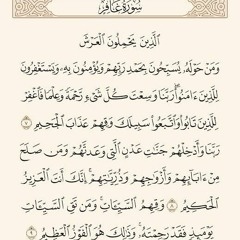 سُورَةُ غَافِر
الَّذِينَ يَحْمِلُونَ الْعَرْشَ
وَمَنْ حَوْلَهُ يُسَبِّحُونَ بِحَمْدِ رَبِّهِمْ وَيُؤْمِنُونَ بِهِ وَيَسْتَغْفِرُونَ
لِلَّذِينَ ءَامَنُوا رَبَّنَا وَسِعْتَ كُلَّ شَيْءٍ رَحْمَةً وَعِلْمًا فَاغْفِرْ
لِلَّذِينَ تَابُوا وَاتَّبَعُوا سَبِيلَكَ وَقِهِمْ عَذَابَ الْجَحِيمِ ٧
رَبَّنَا وَأَدْخِلْهُمْ جَنَّاتِ عَدْنٍ الَّتِي وَعَدْتَهُمْ وَمَنْ صَلَحَ
مِنْ ءَابَائِهِمْ وَأَزْوَاجِهِمْ وَذُرِّيَّاتِهِمْ إِنَّكَ أَنْتَ الْعَزِيزُ
الْحَكِيمُ ٨ وَقِهِمُ السَّيِّئَاتِ وَمَنْ تَقِ السَّيِّئَاتِ
يَوْمَئِذٍ فَقَدْ رَحِمْتَهُ وَذَلِكَ هُوَ الْفَوْزُ الْعَظِيمُ ٩